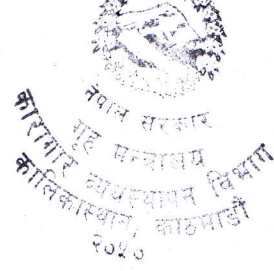 नेपाल सरकार
गृह मन्त्रालय
कारागार व्यवस्थापन विभाग
कालिकास्थान, काठमाडौं
२०५०